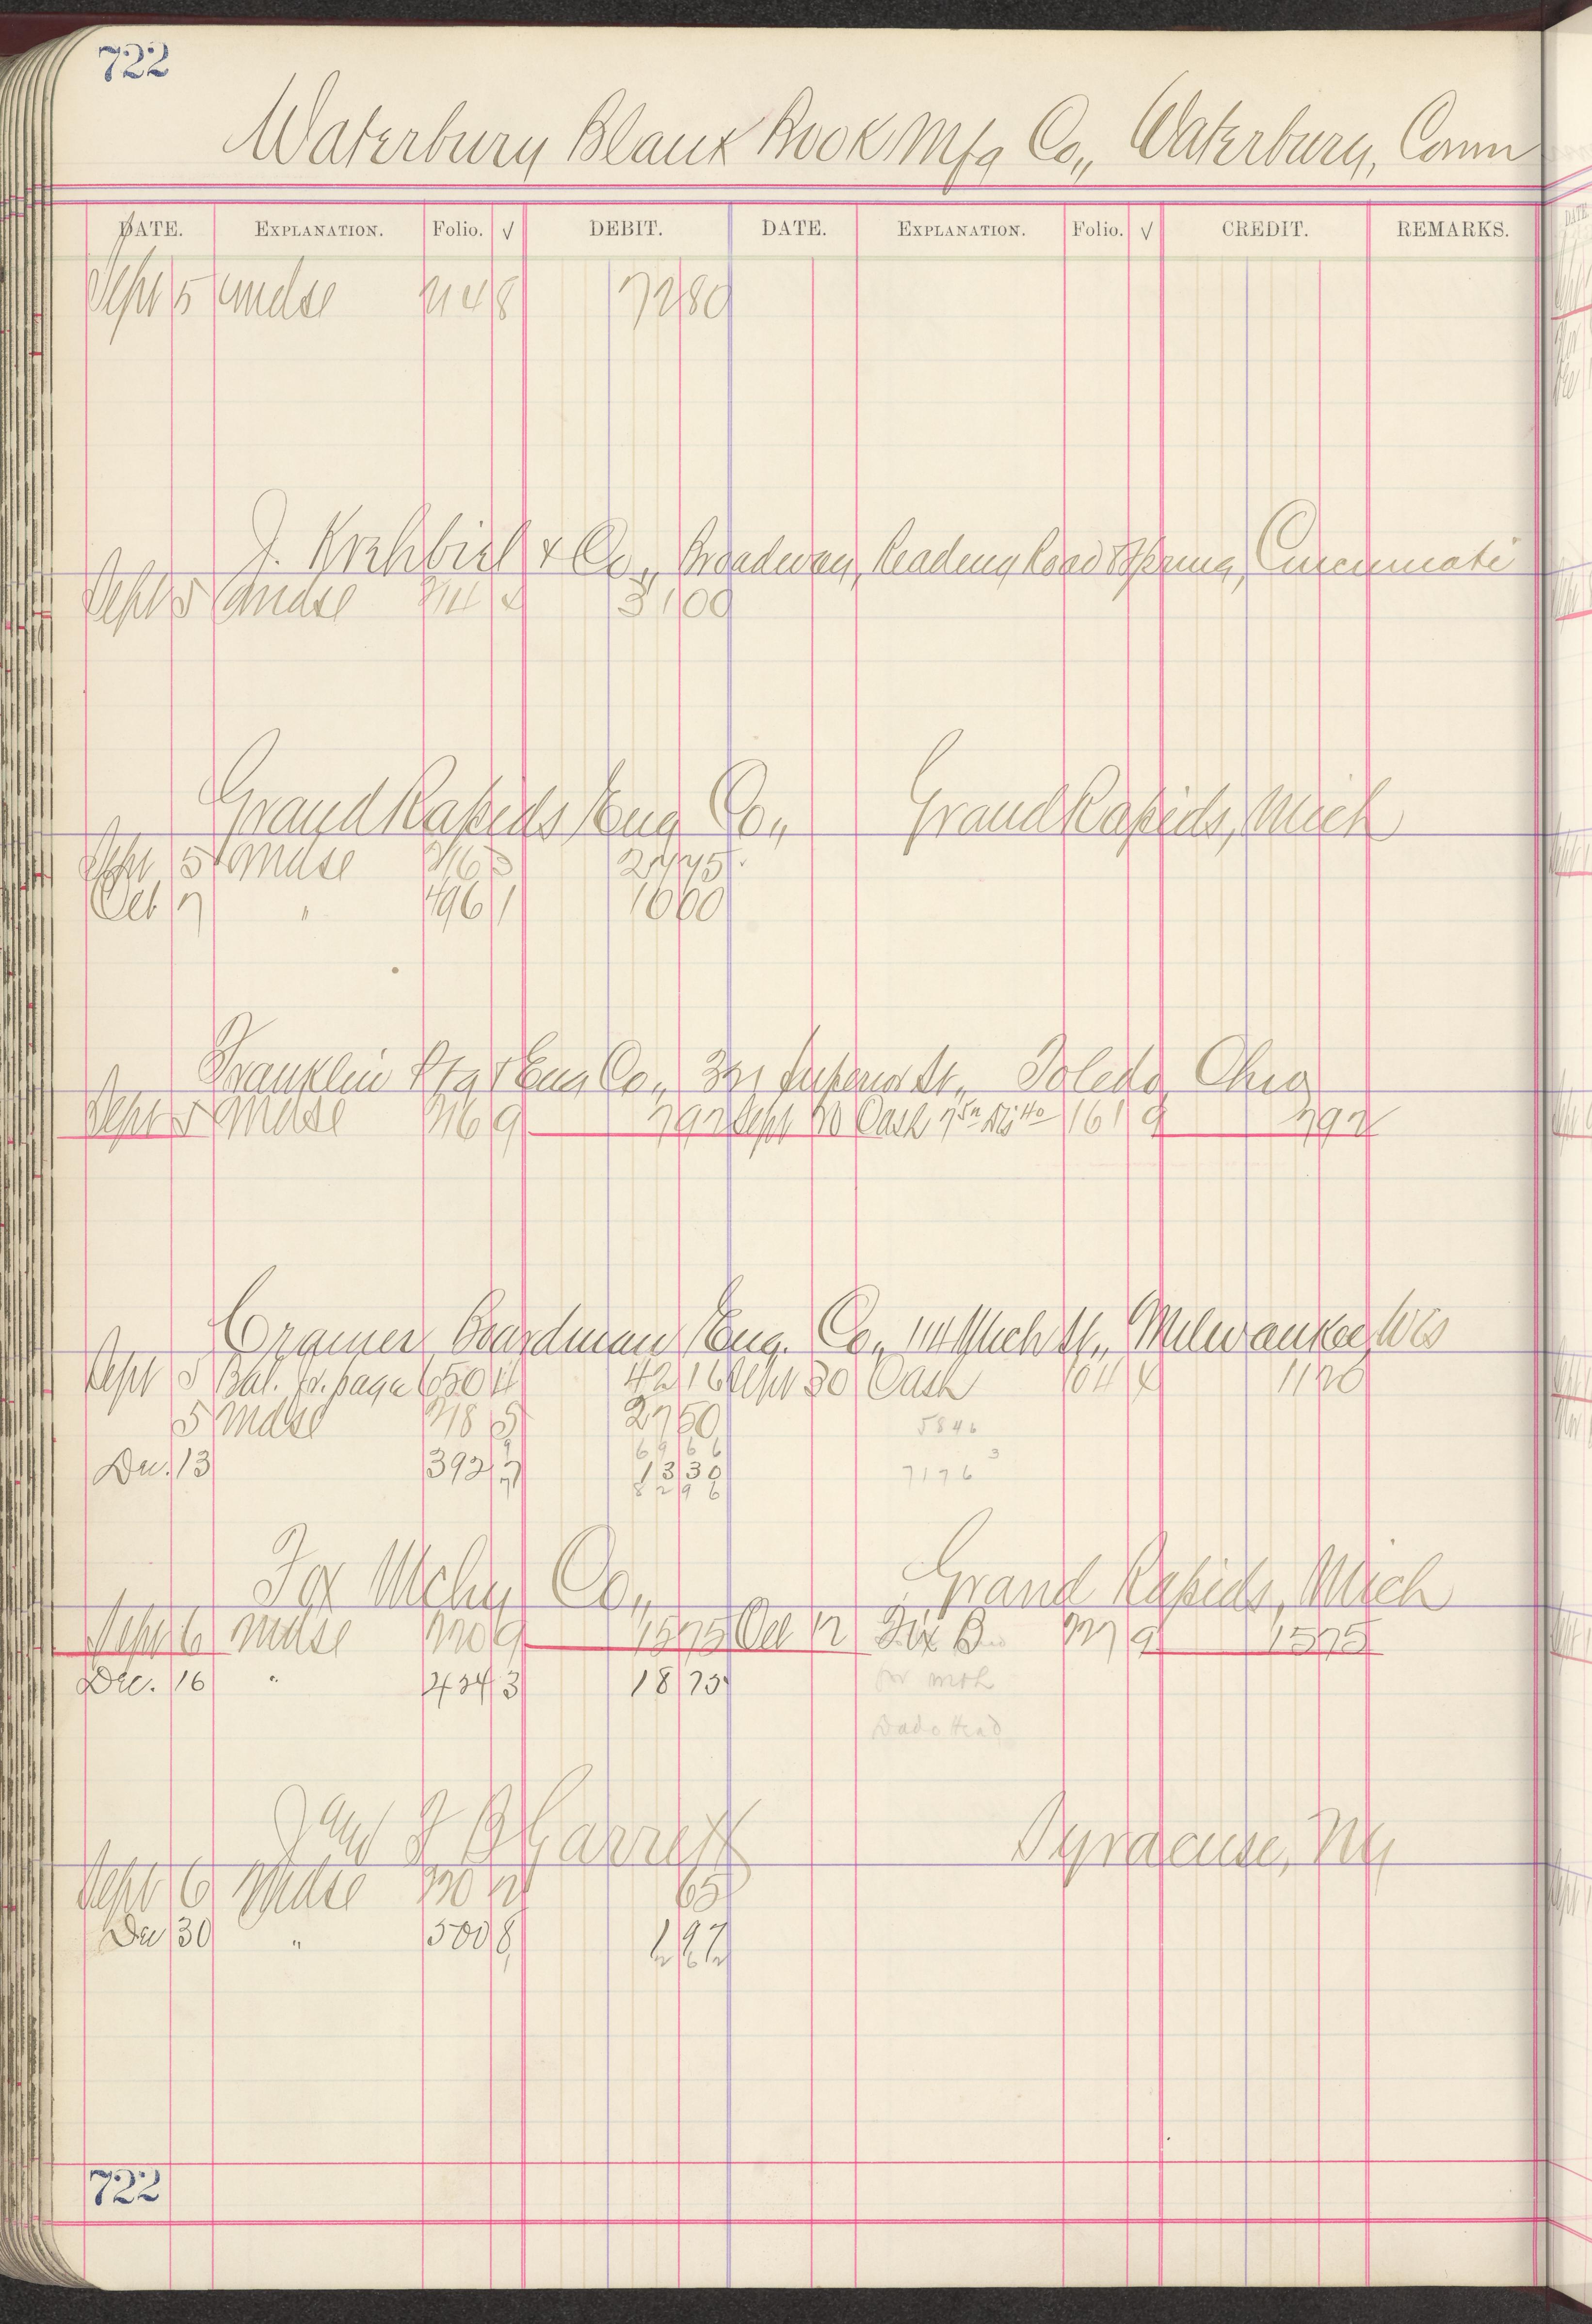 722
Waterbury Blank Book Mfg Co., Waterbury, Conn
DATE. EXPLANATION. Folio. √ DEBIT. DATE. EXPLANATION. Folio. √ CREDIT. REMARKS.
Sept 5 Mdse 214 8 72 80
J. Krehbiel & Co., Broadway, Reading Road & Spring, Cincinnati
Sept 5 Mdse 31 00
Grand Rapids Eng Co., Grand Rapids, Mich
Sept 5 Mdse 216 3
Oct 7 " 496 1 10 00
Franklin Ptg & Eng Co., Superior St., Toledo, Ohio
Sept 5 Mdse 216 9 7 92 Sept 20 Cash 161 9 7 92
Cramer Boardman Eng. Co., 114 Mich St., Milwaukee, Wis
Sept 5 Bal. fr. page 650 4 42 16 Sept 30 Cash 11 20
5 Mdse 218 5 27 50 5846
69 66
Dec. 13 392 7 13 30 7176
82 96
Fox Mchy Co., Grand Rapids, Mich
Sept 6 Mdse 220 9 15 75 Oct 12 Fix B 227 9 15 75
Dec. 16 " 434 3 18 75 for mch
Dado Head
Jas J B Garrett Syracuse, NY
Sept 6 Mdse 220 12 65
Dec 30 " 500 8 1 97
722